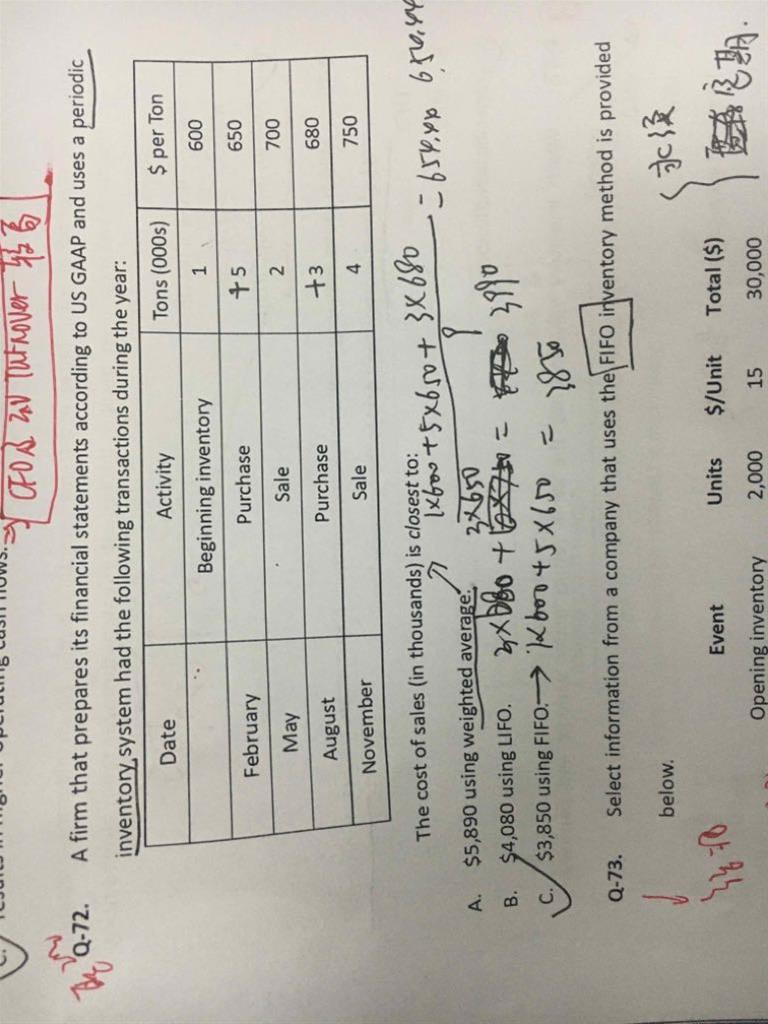 CFO
Turnover
Q-72. A firm that prepares its financial statements according to US GAAP and uses a periodic
inventory system had the following transactions during the year:
Date Activity Tons (000s) $ per Ton
Beginning inventory 1 600
February Purchase +5 650
May Sale 2 700
August Purchase +3 680
November Sale 4 750
The cost of sales (in thousands) is closest to:
1×600+5×650+3×680
9
= 654.44
A. $5,890 using weighted average.
3×650
B. $4,080 using LIFO. 3×680 + = 3990
C. $3,850 using FIFO. → 1×600+5×650 = 3850
Q-73. Select information from a company that uses the FIFO inventory method is provided
below.
永续
Event Units $/Unit Total ($)
Opening inventory 2,000 15 30,000